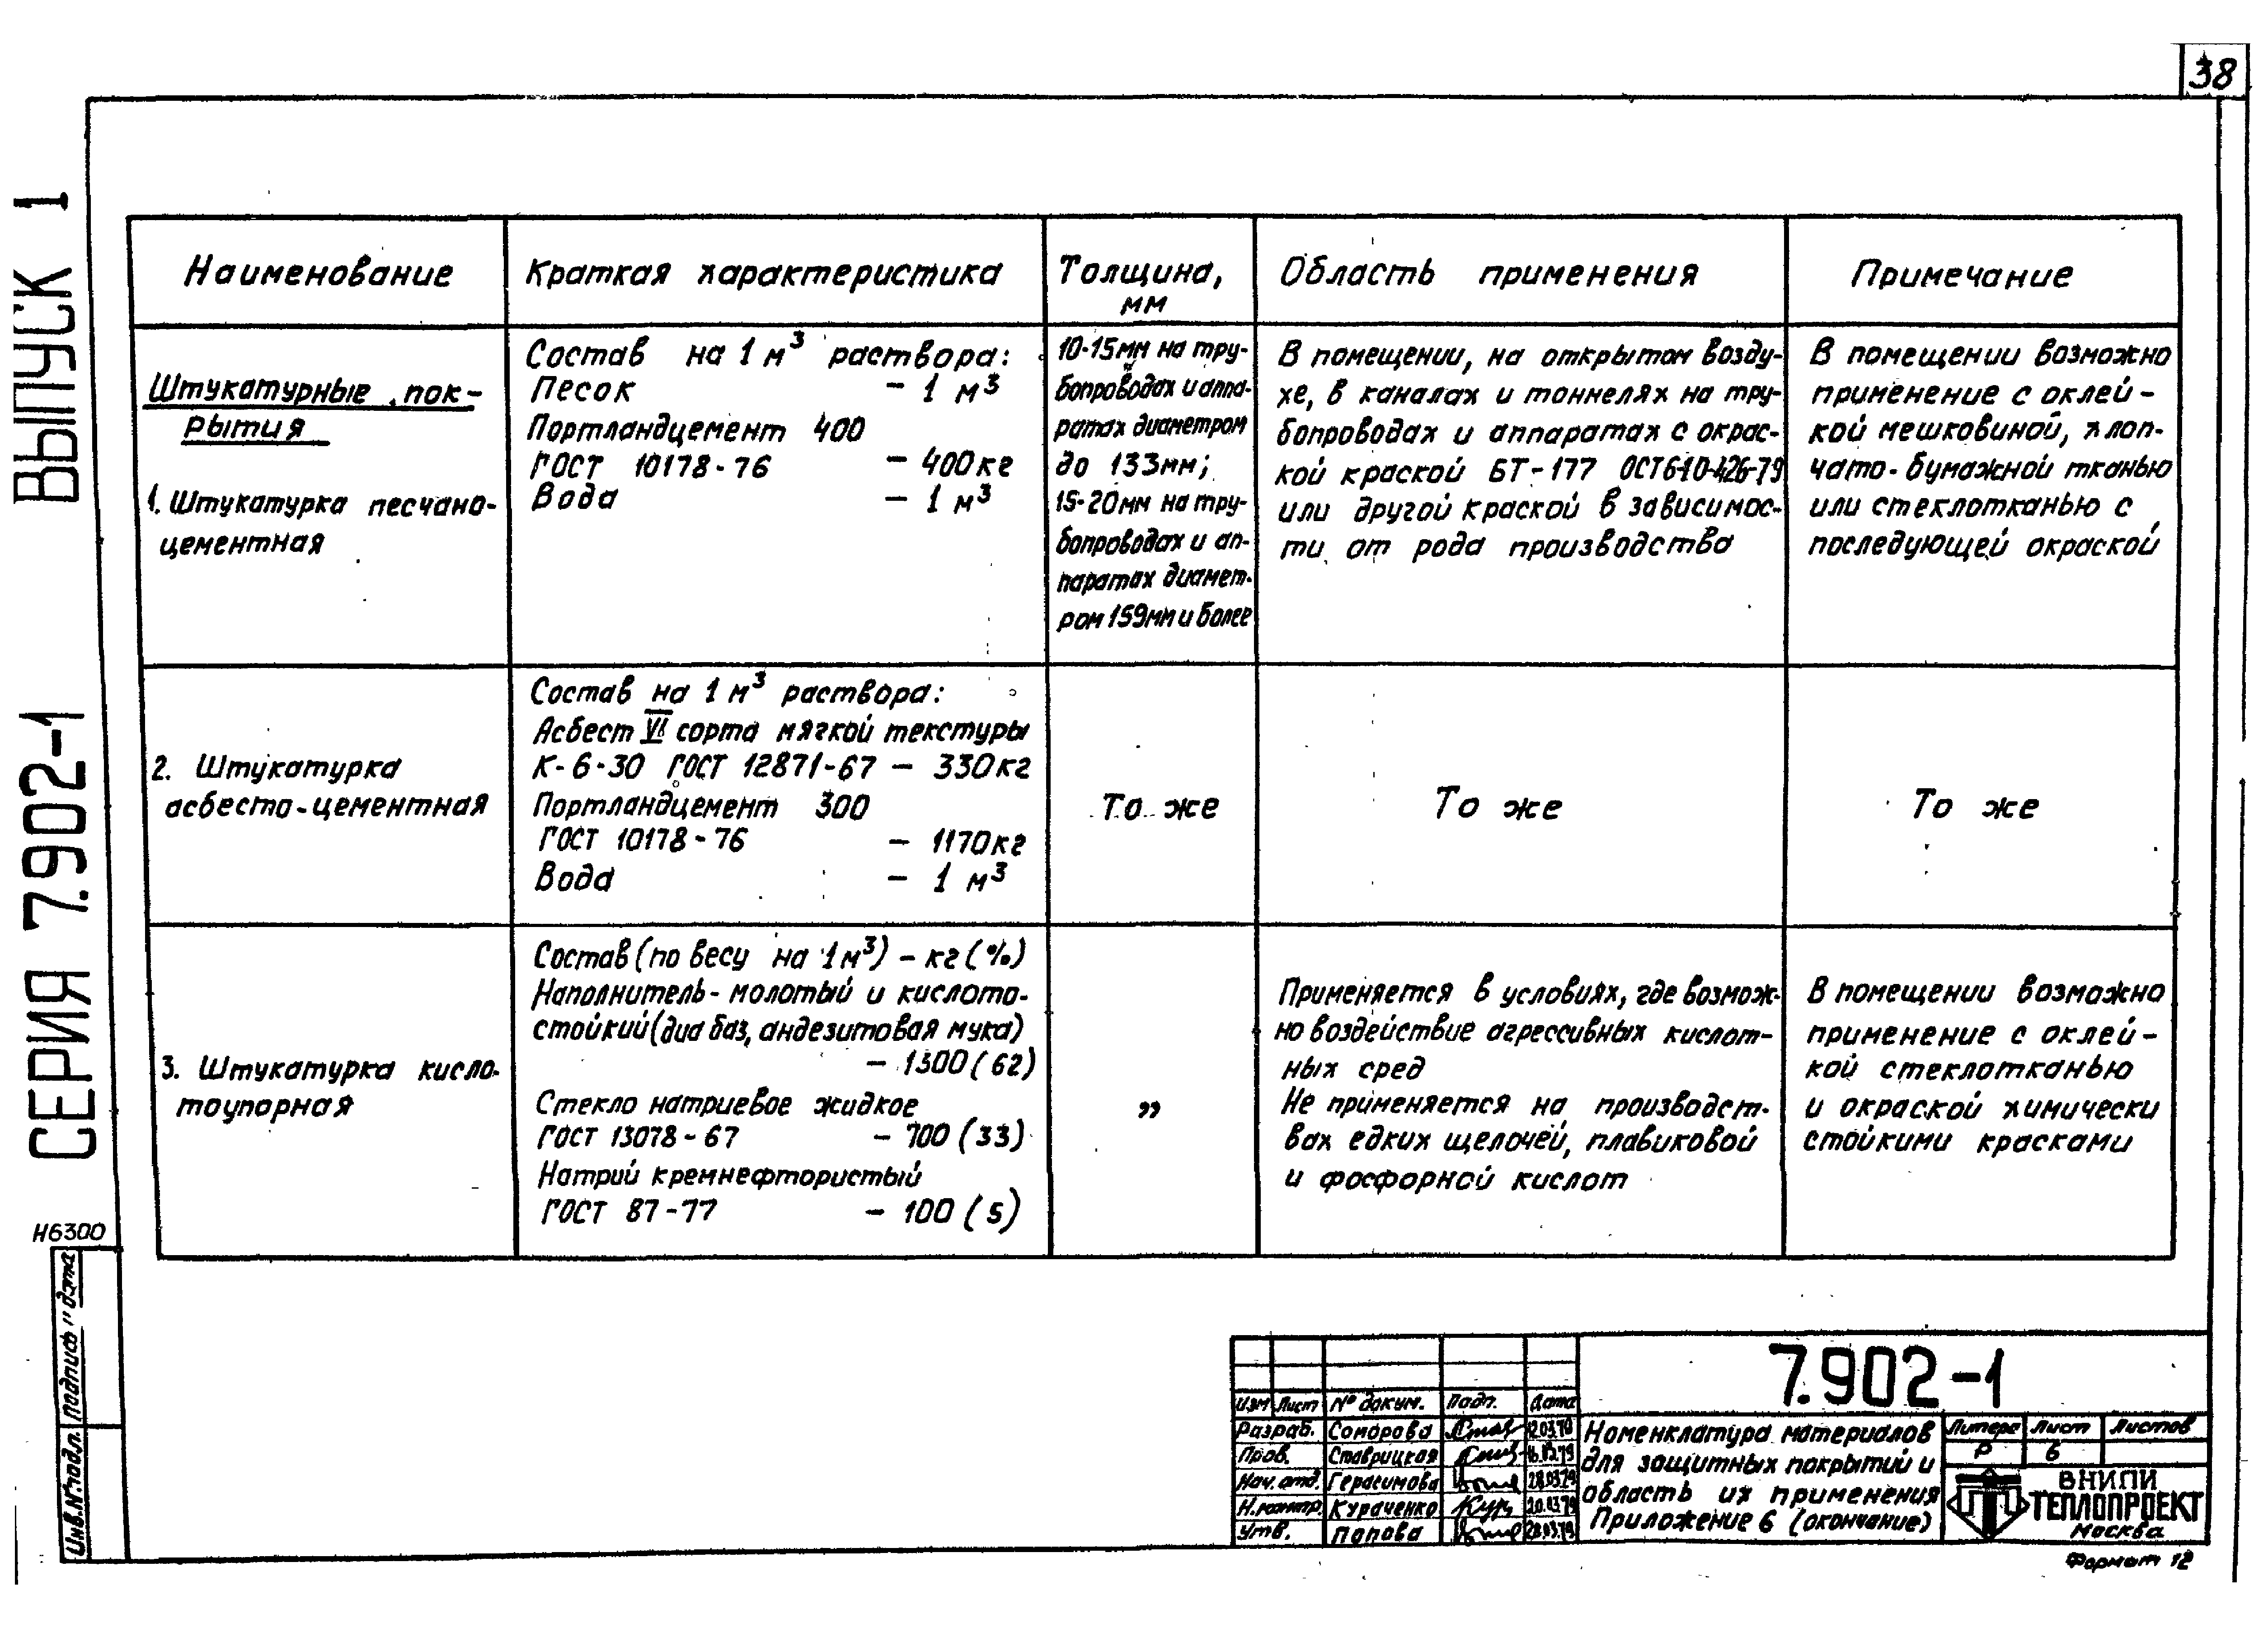 38
СЕРИЯ 7.902-1 ВЫПУСК 1
Наименование
Краткая характеристика
Толщина,
мм
Область применения
Примечание
Штукатурные пок-
рытия
1. Штукатурка песчано-
цементная
Состав на 1 м³ раствора:
Песок - 1 м³
Портландцемент 400
ГОСТ 10178-76 - 400кг
Вода - 1 м³
10-15мм на тру-
бопроводах и аппа-
ратах диаметром
до 133мм;
15-20мм на тру-
бопроводах и ап-
паратах диамет-
ром 159мм и более
В помещении, на открытом возду-
хе, в каналах и тоннелях на тру-
бопроводах и аппаратах с окрас-
кой краской БТ-177 ОСТ6-10-426-79
или другой краской в зависимос-
ти от рода производства
В помещении возможно
применение с оклей-
кой мешковиной, хлоп-
чато-бумажной тканью
или стеклотканью с
последующей окраской
2. Штукатурка
асбесто-цементная
Состав на 1 м³ раствора:
Асбест VI сорта мягкой текстуры
К-6-30 ГОСТ 12871-67 - 330кг
Портландцемент 300
ГОСТ 10178-76 - 1170кг
Вода - 1 м³
То же
То же
То же
3. Штукатурка кисло-
тоупорная
Состав (по весу на 1м³) - кг (%)
Наполнитель - молотый и кислото-
стойкий (диабаз, андезитовая мука)
- 1300 (62)
Стекло натриевое жидкое
ГОСТ 13078-67 - 700 (33)
Натрий кремнефтористый
ГОСТ 87-77 - 100 (5)
"
Применяется в условиях, где возмож-
но воздействие агрессивных кислот-
ных сред
Не применяется на производст-
вах едких щелочей, плавиковой
и фосфорной кислот
В помещении возможно
применение с оклей-
кой стеклотканью
и окраской химически
стойкими красками
Н6300
Инв.№подл. Подпись и дата
7.902-1
Изм Лист № докум. Подп. Дата
Разраб. Соморова
Пров. Ставрицкая
Нач. отд. Герасимова 28.03.79
Н.контр. Кураченко 20.03.79
Утв. Попова 28.03.79
Номенклатура материалов
для защитных покрытий и
область их применения
Приложение 6 (окончание)
Литера Лист Листов
Р 6
ВНИПИ
ТЕПЛОПРОЕКТ
Москва
Формат 12